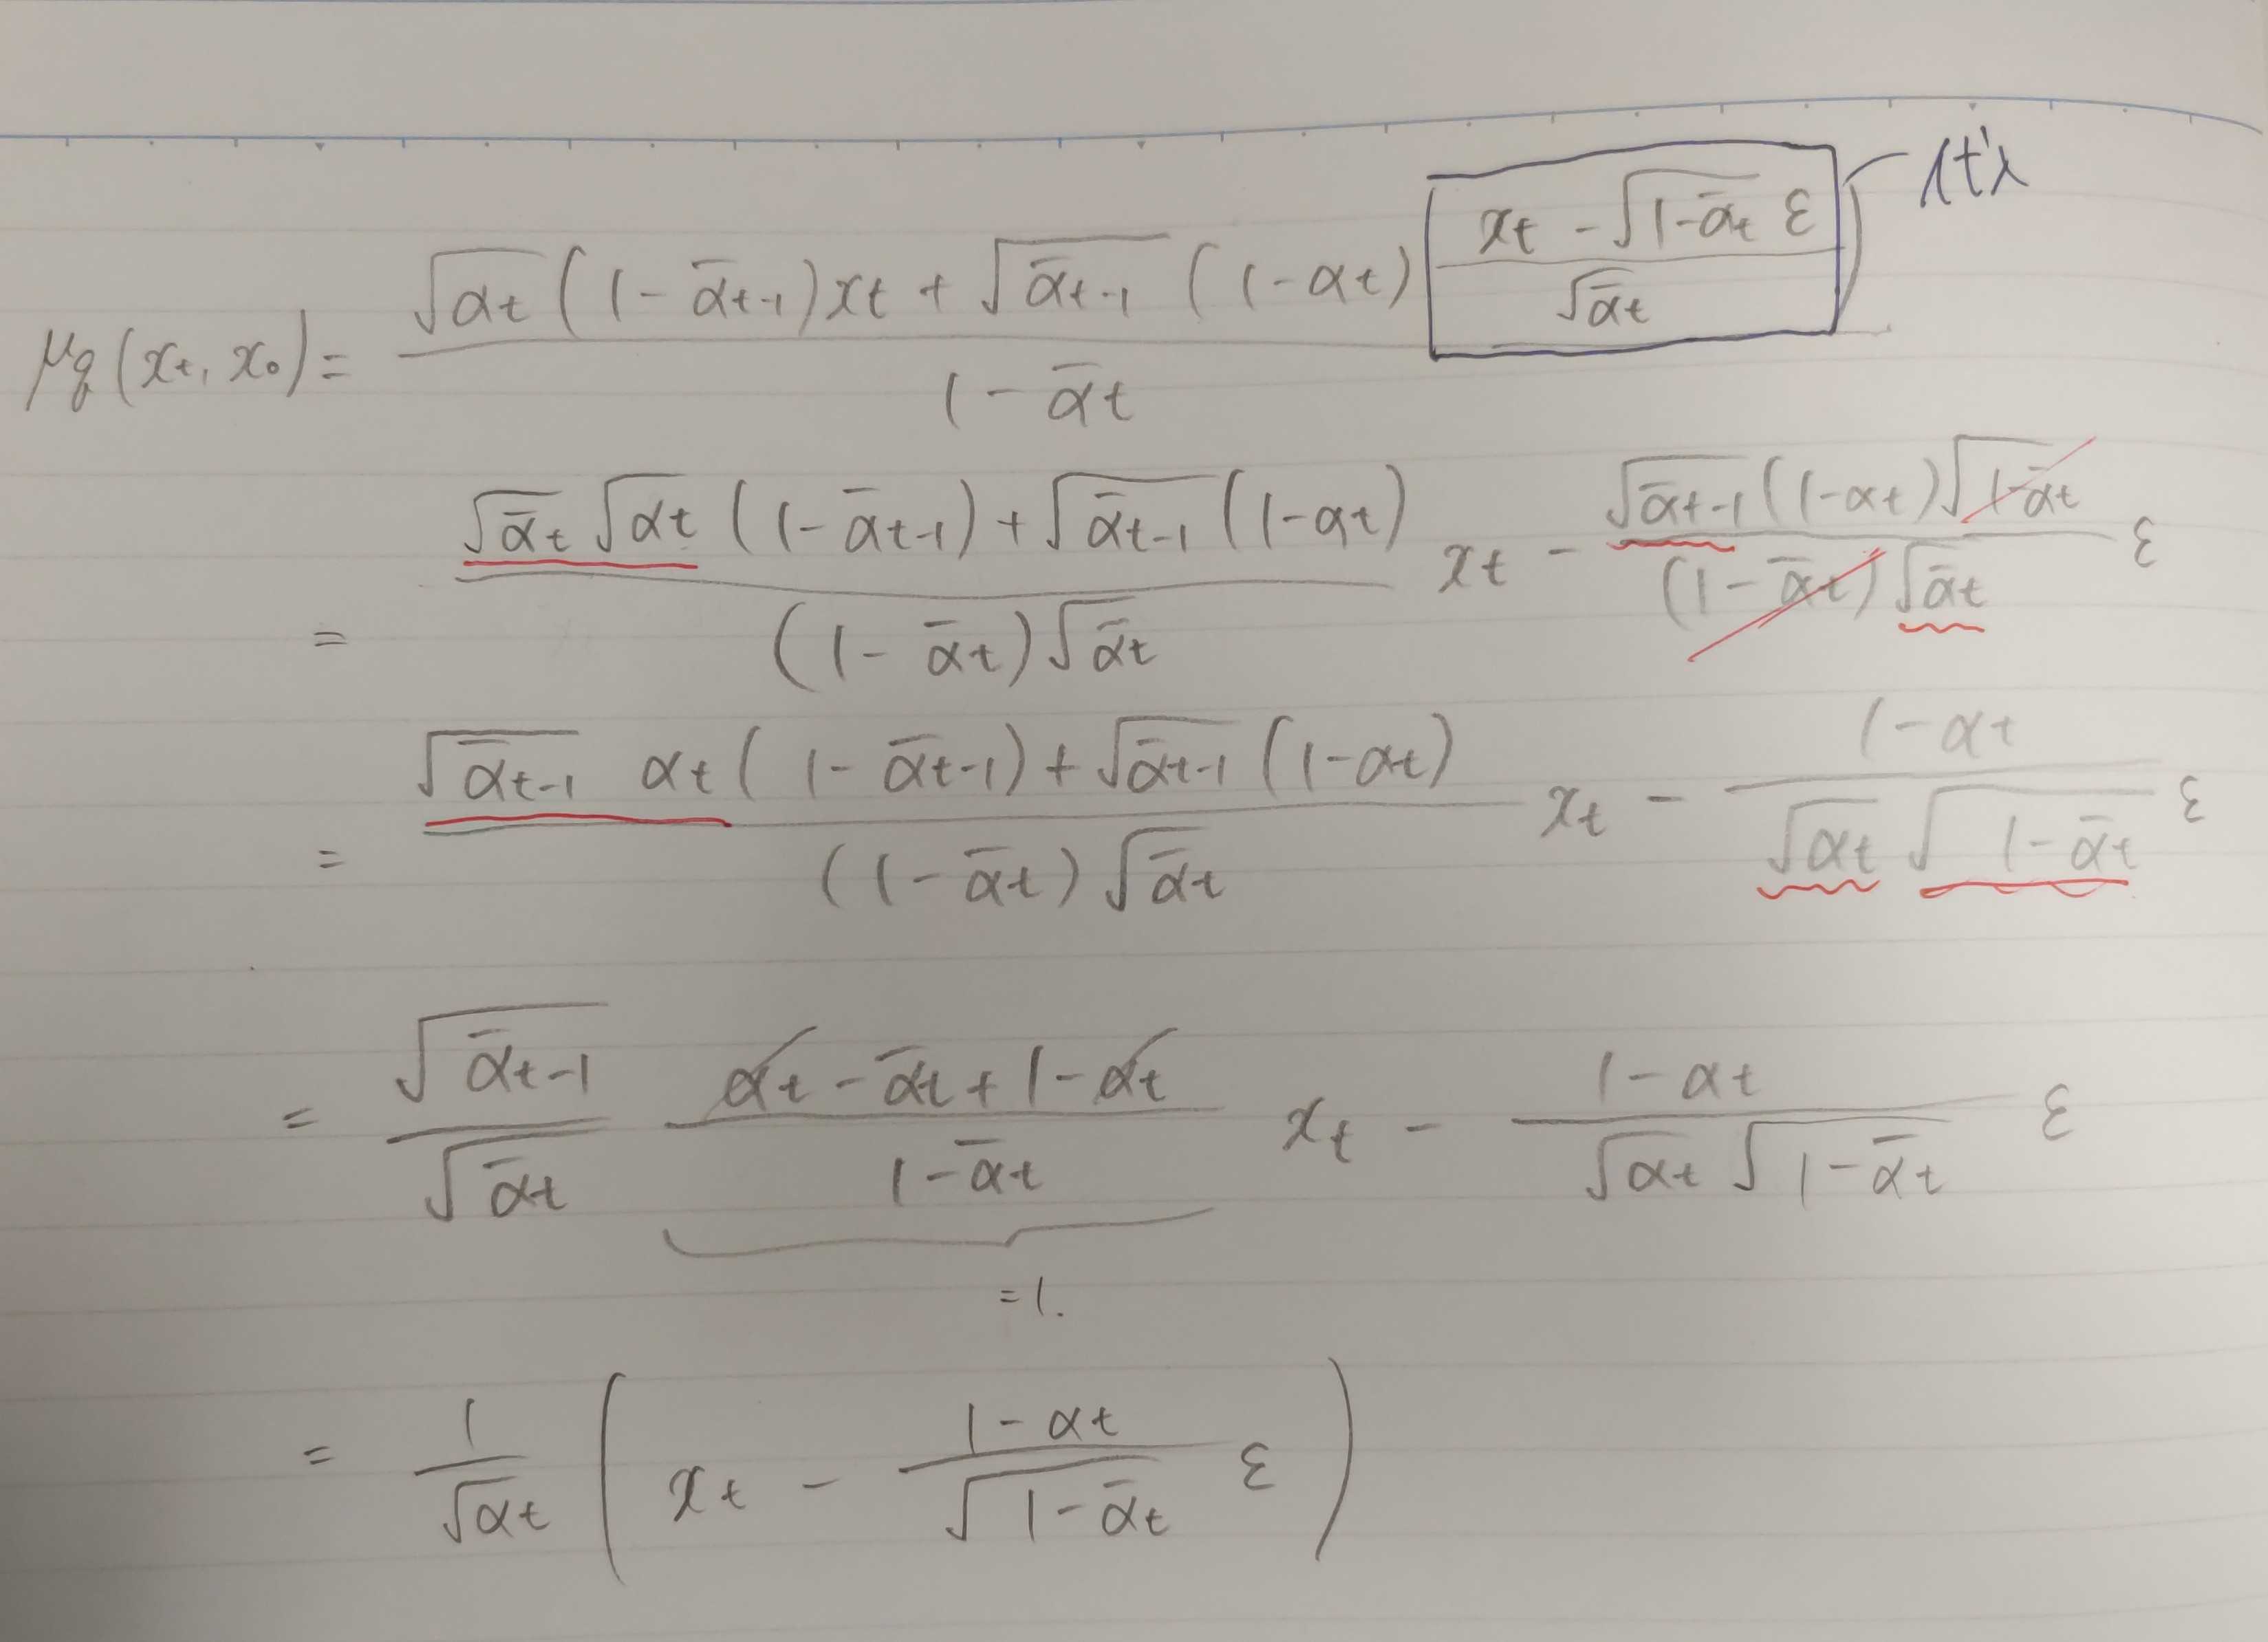 μq(xt, x0) = (√αt (1-ᾱt-1)xt + √ᾱt-1 (1-αt) (xt - √1-ᾱt ε)/√ᾱt) / (1-ᾱt) 代入
= (√ᾱt √αt (1-ᾱt-1) + √ᾱt-1 (1-αt)) / ((1-ᾱt)√ᾱt) xt - (√ᾱt-1 (1-αt)√1-ᾱt) / ((1-ᾱt)√ᾱt) ε
= (√ᾱt-1 αt (1-ᾱt-1) + √ᾱt-1 (1-αt)) / ((1-ᾱt)√ᾱt) xt - (1-αt) / (√αt √1-ᾱt) ε
= √ᾱt-1 / √ᾱt (αt - ᾱt + 1 - αt) / (1-ᾱt) xt - (1-αt) / (√αt √1-ᾱt) ε
=1.
= 1/√αt ( xt - (1-αt) / √1-ᾱt ε )